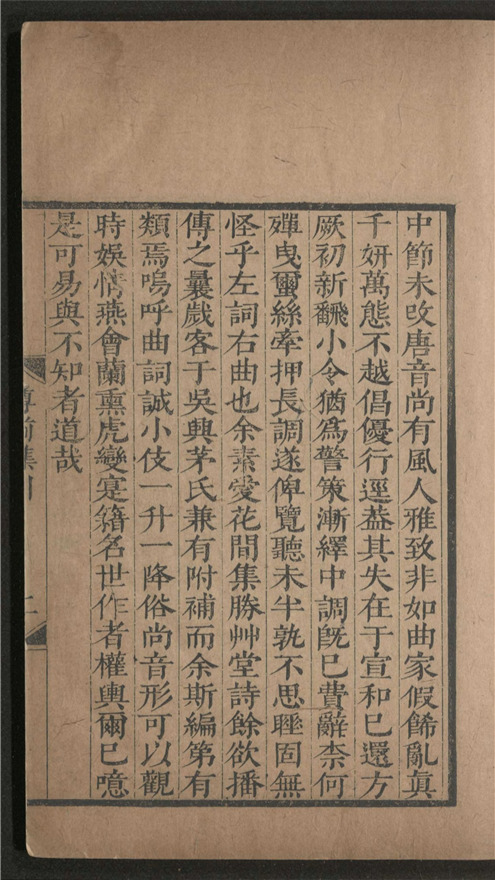 中節未攺唐音尚有風人雅致非如曲家假餙亂眞
千妍萬態不越倡優行逕葢其失在于宣和巳還方
厥初新飜小令猶爲警策漸繹中調旣巳費辭柰何
殫曳蠒絲牽押長調遂俾覽聽未半孰不思睡固無
怪乎左詞右曲也余素愛花間集勝艸堂詩餘欲播
傳之曩歲客于吳興茅氏兼有附補而余斯編第有
類焉嗚呼曲詞誠小伎一升一降俗尚音形可以觀
時娛情燕會蘭熏虎變寔籍名世作者權輿爾巳噫
是可易與不知者道哉
尊前集引
二